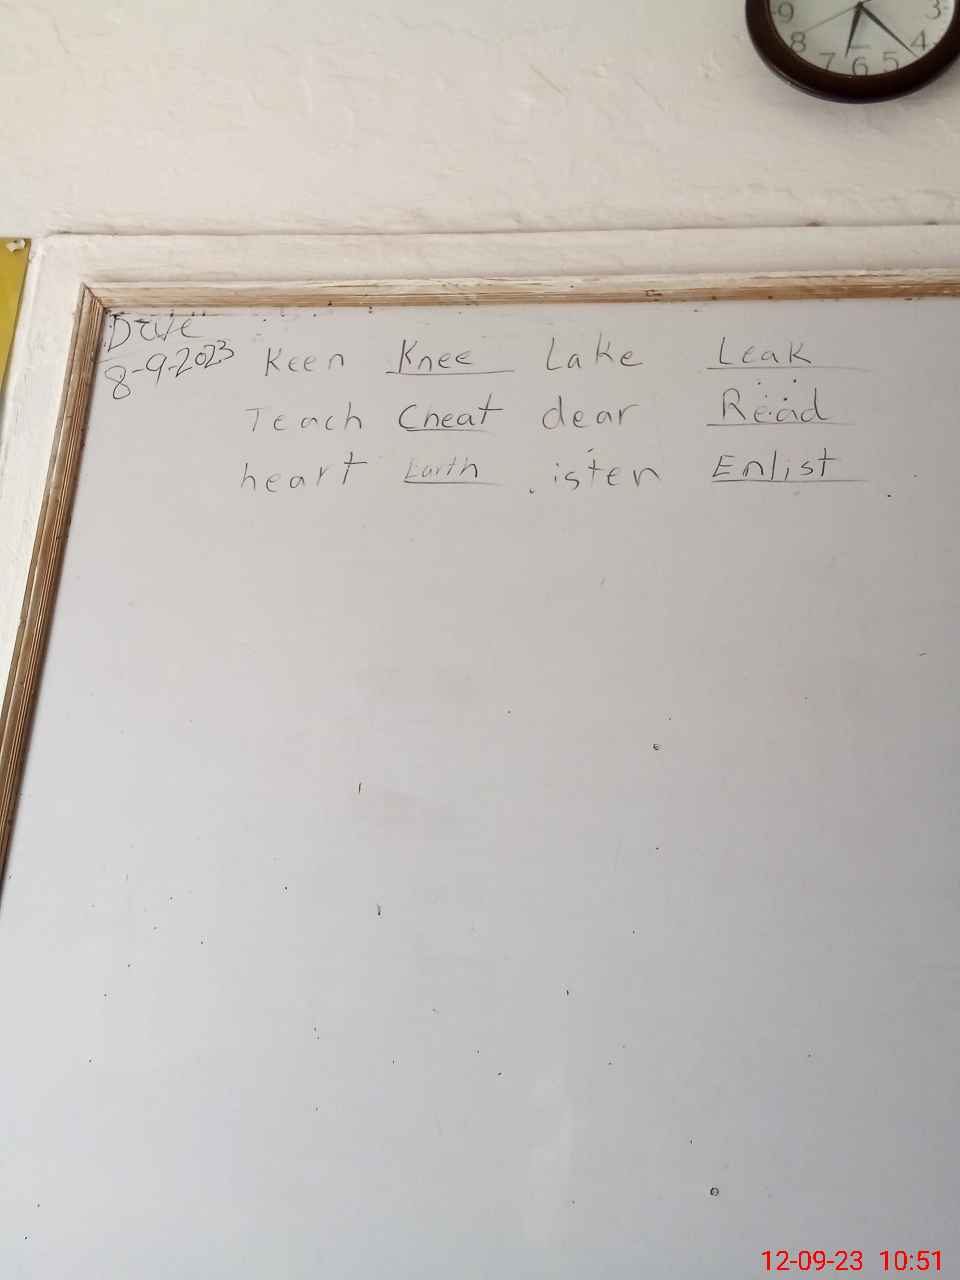 9 3
8 4
7 6 5
Date
8-9-2023 Keen Knee Lake Leak
Teach Cheat dear Read
heart Earth isten Enlist
12-09-23 10:51